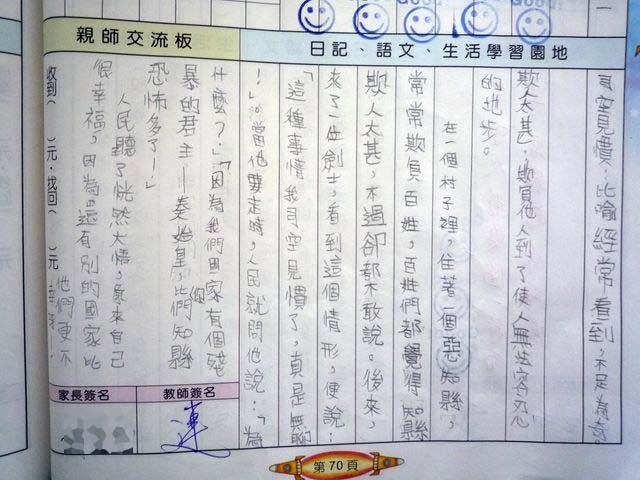 Good!
親師交流板
日記、語文、生活學習園地
司空見慣:比喻經常看到,不足為奇
欺人太甚:欺負他人到了使人無法容忍
的地步。
在一個村子裡,住著一個惡知縣,
常常欺負百姓,百姓們都覺得知縣
欺人太甚,不過卻都不敢說。後來,
來了一位劍士,看到這個情形,便說:
「這種事情我司空見慣了,真是無聊
!」當他要走時,人民就問他說:「為
什麼?」「因為我們國家有個殘
暴的君主—秦始皇,比你們知縣
恐怖多了!」
人民聽了恍然大悟,原來自己
很幸福,因為還有別的國家比
他們更不
幸呀!
收到( )元.找回( )元
教師簽名
連
家長簽名
第70頁